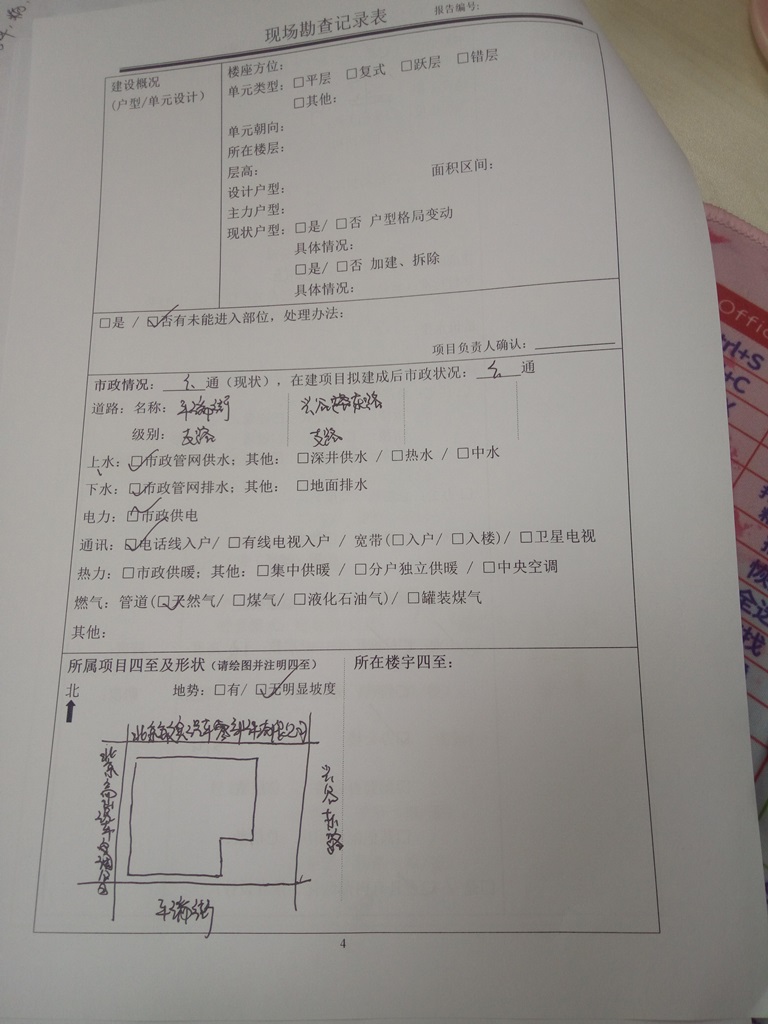 现场勘查记录表
报告编号:
建设概况
(户型/单元设计)
楼座方位:
单元类型: □平层 □复式 □跃层 □错层
□其他:
单元朝向:
所在楼层:
层高: 面积区间:
设计户型:
主力户型:
现状户型: □是/ □否 户型格局变动
具体情况:
□是/ □否 加建、拆除
具体情况:
□是 / ☑否有未能进入部位, 处理办法:
项目负责人确认:
市政情况: 通(现状), 在建项目拟建成后市政状况: 通
道路: 名称: 兴谷东路
级别: 支路 支路
上水: ☑市政管网供水; 其他: □深井供水 / □热水 / □中水
下水: ☑市政管网排水; 其他: □地面排水
电力: ☑市政供电
通讯: ☑电话线入户/ □有线电视入户 / 宽带(□入户/ □入楼)/ □卫星电视
热力: □市政供暖; 其他: □集中供暖 / □分户独立供暖 / □中央空调
燃气: 管道(☑天然气/ □煤气/ □液化石油气)/ □罐装煤气
其他:
所属项目四至及形状 (请绘图并注明四至)
所在楼宇四至:
北
地势: □有/ ☑无明显坡度
兴谷东路
4
Office
trl+S
+C